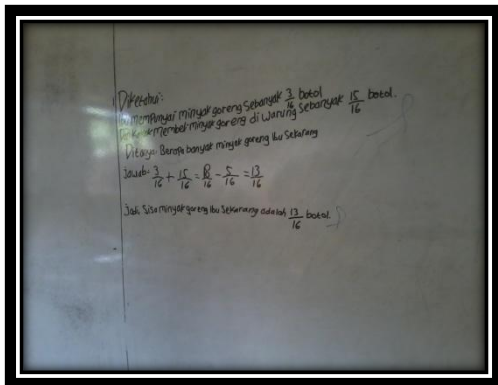 Diketahui:
Ibu mempunyai minyak goreng sebanyak 3/16 botol
membeli minyak goreng di warung sebanyak 15/16 botol.
Ditanya: Berapa banyak minyak goreng Ibu Sekarang
Jawab: 3/16 + 15/16 = 18/16 - 5/16 = 13/16
Jadi Sisa minyak goreng Ibu Sekarang adalah 13/16 botol.